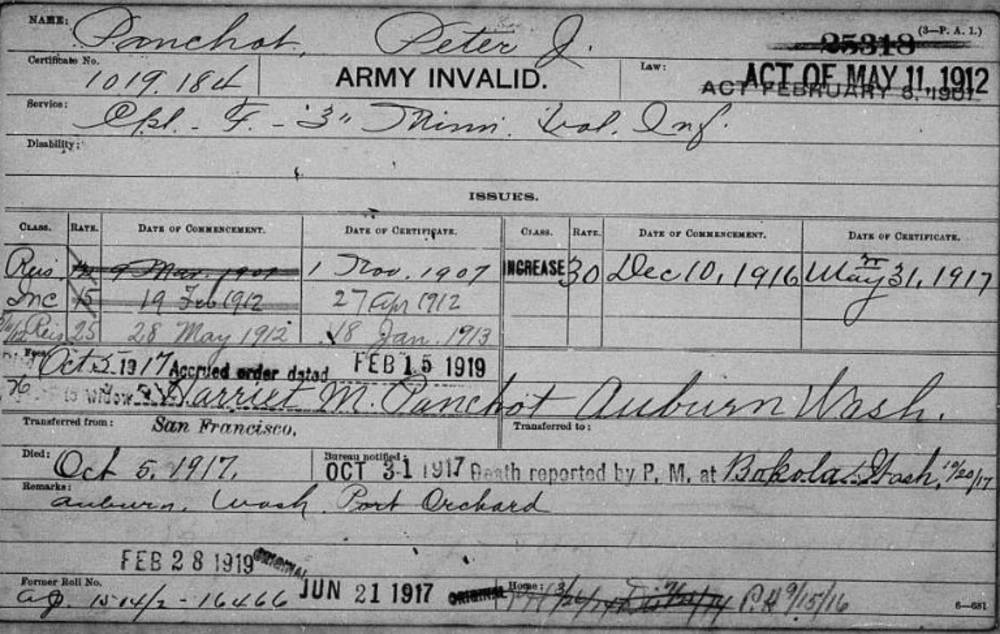 NAME: Panchot, Peter J. (3—P. A. 1.)
25318
Certificate No. 1019.184 ARMY INVALID. Law: ACT OF MAY 11, 1912
ACT FEBRUARY 6, 1907
Service: Cpl. - F. - 3" Minn. Vol. Inf.
Disability:
ISSUES.
CLASS. RATE. DATE OF COMMENCEMENT. DATE OF CERTIFICATE. CLASS. RATE. DATE OF COMMENCEMENT. DATE OF CERTIFICATE.
Reis 9 Mar. 1907 1 Nov. 1907 INCREASE 30 Dec 10, 1916 May 31, 1917
Inc 15 19 Feb 1912 27 Apr 1912
Reis 25 28 May 1912 18 Jan. 1913
Oct 5 1917 Accrued order dated FEB 15 1919
to widow Harriet M. Panchot Auburn Wash.
Transferred from: San Francisco. Transferred to:
Died: Oct 5. 1917. Bureau notified: OCT 31 1917 Death reported by P. M. at Bokola Wash, 10/20/17
Remarks: Auburn, Wash. Port Orchard
FEB 28 1919 ORIGINAL
Former Roll No. 1514/2 - 16466 JUN 21 1917 ORIGINAL Home: 9/15/16 6—681